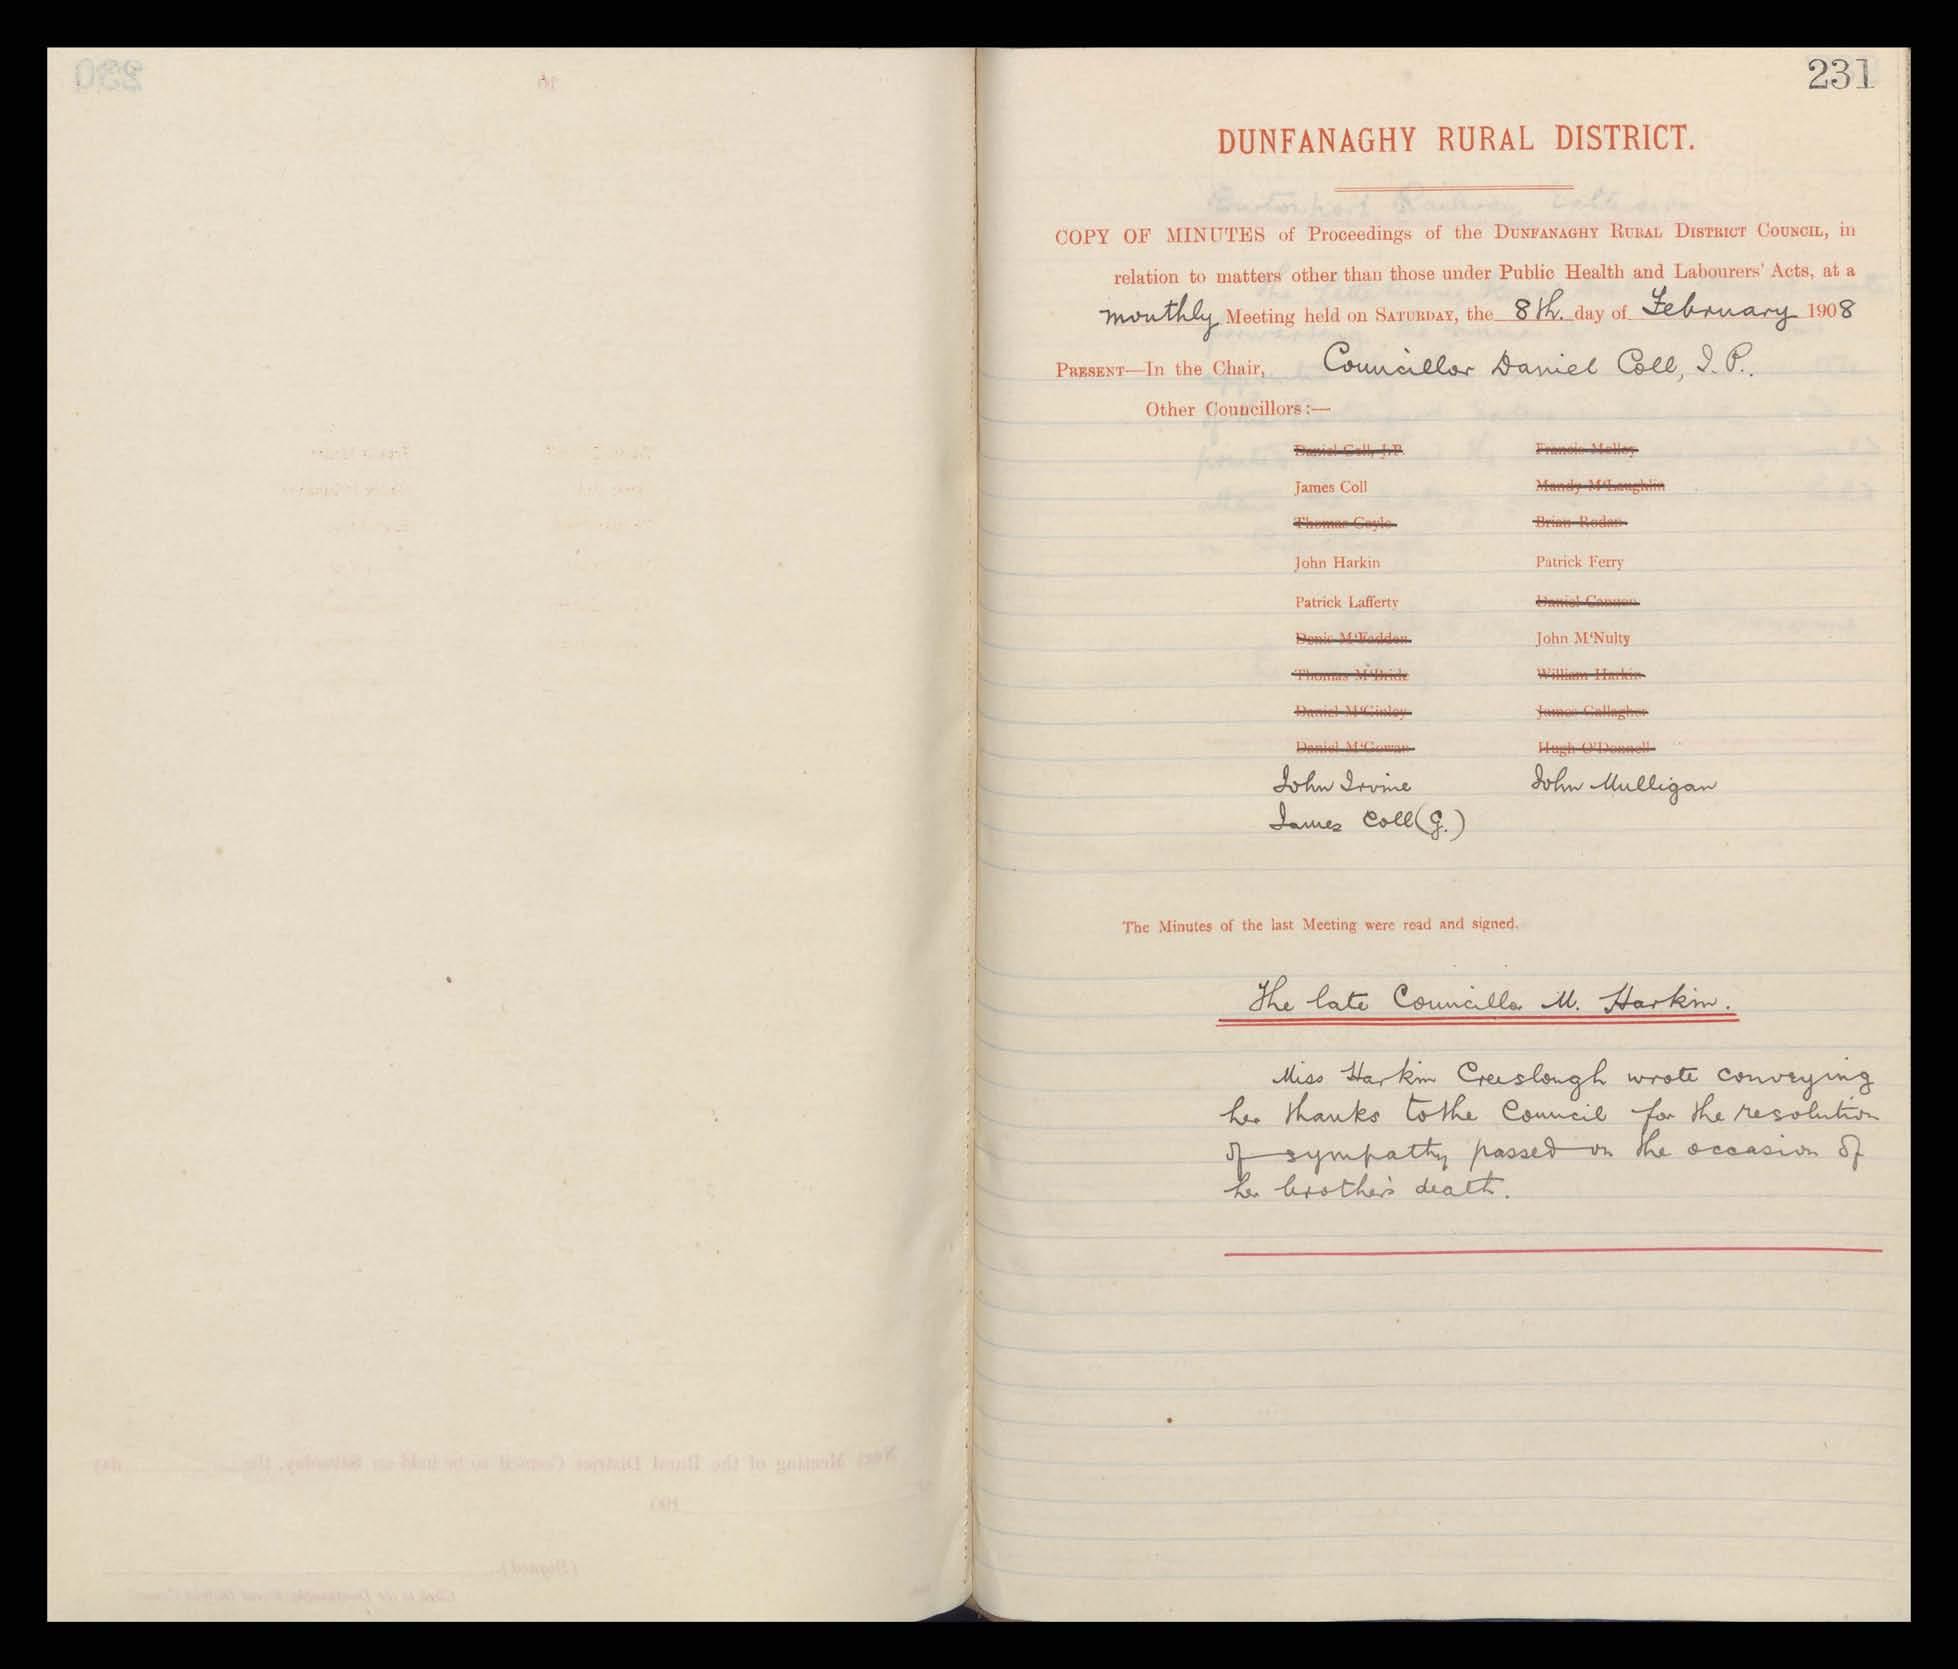 231
DUNFANAGHY RURAL DISTRICT.
COPY OF MINUTES of Proceedings of the DUNFANAGHY RURAL DISTRICT COUNCIL, in
relation to matters other than those under Public Health and Labourers' Acts, at a
monthly Meeting held on SATURDAY, the 8th. day of February 1908
PRESENT—In the Chair, Councillor Daniel Coll, J. P..
Other Councillors:—
Daniel Coll, J.P. Francis Molloy
James Coll Mandy M'Laughlin
Thomas Coyle Brian Rodan
John Harkin Patrick Ferry
Patrick Lafferty Daniel Cannon
Denis M'Fadden John M'Nulty
Thomas M'Bride William Harkin
Daniel M'Ginley James Gallagher
Daniel M'Gowan Hugh O'Donnell
John Irvine John Mulligan
James Coll (G.)
The Minutes of the last Meeting were read and signed.
The late Councillor M. Harkin.
Miss Harkin Creeslough wrote conveying
her thanks to the Council for the resolution
of sympathy passed on the occasion of
her brother's death.